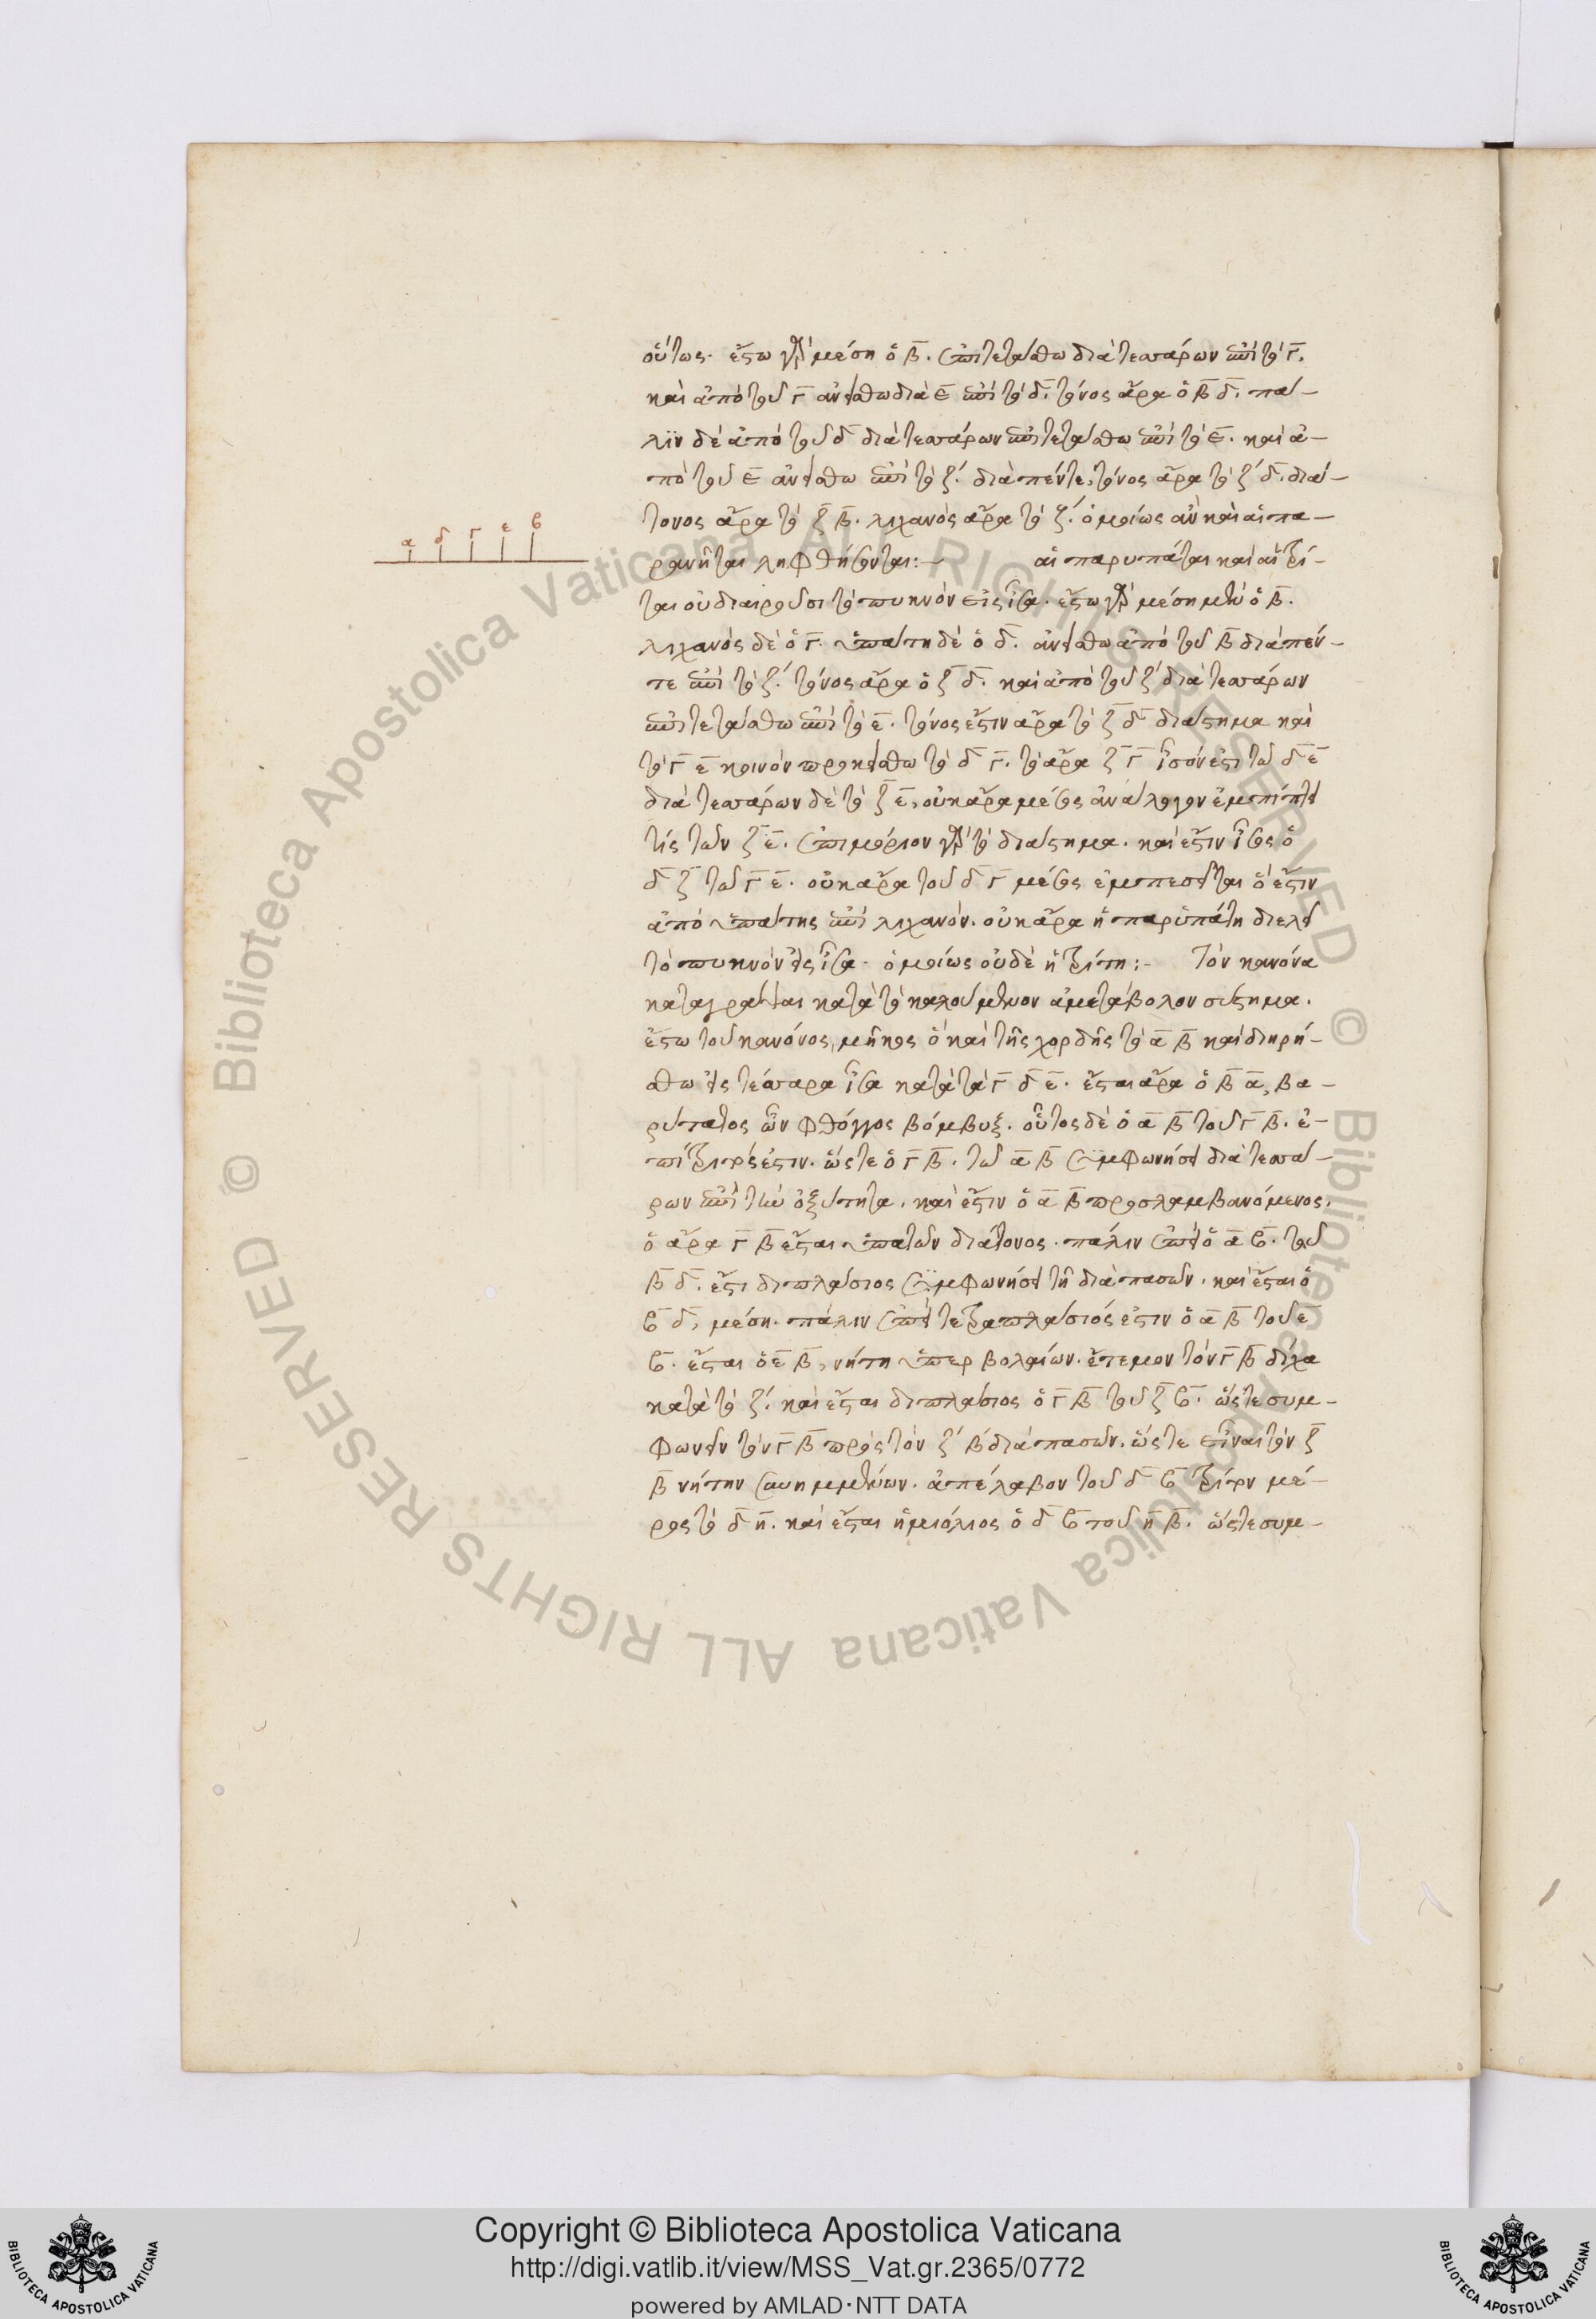 οὕτως. ἔστω γὰρ μέση ὁ β̅. ἐπιτετάσθω διὰ τεσσάρων ἐπὶ τὸ γ̅.
καὶ ἀπὸ τοῦ γ̅ ἀνείσθω διὰ ε̅ ἐπὶ τὸ δ̅. τόνος ἄρα ὁ β̅ δ̅. πά-
λϊν δὲ ἀπὸ τοῦ δ̅ διὰ τεσσάρων ἐπιτετάσθω ἐπὶ τὸ ε̅. καὶ ἀ-
πὸ τοῦ ε̅ ἀνείσθω ἐπὶ τὸ ζ΄. διὰ πέντε, τόνος ἄρα τὸ ζ΄ δ̅. διά-
τονος ἄρα τὸ ζ̅ β̅. λιχανὸς ἄρα τὸ ζ΄. ὁμοίως ἂν καὶ αἱ πα-
ρανῆται ληφθήσονται:— αἱ παρυπάται καὶ αἱ τρί-
ται οὐ διαιροῦσι τὸ πυκνὸν εἰς ἶσα. ἔστω γὰρ μέση μὲν ὁ β̅.
λιχανὸς δὲ ὁ γ̅. ὑπάτη δὲ ὁ δ̅. ἀνείσθω ἀπὸ τοῦ β̅ διὰ πέν-
τε ἐπὶ τὸ ζ΄. τόνος ἄρα ὁ ζ̅ δ̅. καὶ ἀπὸ τοῦ ζ΄ διὰ τεσσάρων
ἐπιτετάσθω ἐπὶ τὸ ε̅. τόνος ἐστὶν ἄρα τὸ ζ̅ δ̅ διάστημα καὶ
τὸ γ̅ ε̅ κοινὸν προκείσθω τὸ δ̅ γ̅. τὸ ἄρα ζ̅ γ̅ ἶσόν ἐστι τῶ δ̅ ε̅
διὰ τεσσάρων δὲ τὸ ζ̅ ε̅, οὐκ ἄρα μέσος ἀνάλογον ἐμπίπτει
τίς τῶν ζ̅ ε̅. ἐπιμόριον γὰρ τὸ διάστημα. καὶ ἔστιν ἶσος ὁ
δ̅ ζ̅ τῶ γ̅ ε̅. οὐκ ἄρα τοῦ δ̅ γ̅ μέσος ἐμπεσεῖται ὅ ἐστιν
ἀπὸ ὑπάτης ἐπὶ λιχανόν. οὐκ ἄρα ἡ παρυπάτη διελεῖ
τὸ πυκνὸν εἰς ἶσα. ὁμοίως οὐδὲ ἡ τρίτη:— Τὸν κανόνα
καταγράψαι κατὰ τὸ καλούμενον ἀμετάβολον σύστημα.
ἔστω τοῦ κανόνος, μῆκος ὃ καὶ τῆς χορδῆς τὸ α̅ β̅ καὶ διηρή-
σθω εἰς τέσσαρα ἶσα κατὰ τὰ γ̅ δ̅ ε̅. ἔσται ἄρα ὁ β̅ α̅, βα-
ρύτατος ὢν φθόγγος βόμβυξ. οὗτος δὲ ὁ α̅ β̅ τοῦ γ̅ β̅. ἐ-
πίτριτός ἐστιν. ὥστε ὁ γ̅ β̅. τῶ α̅ β̅ συμφωνήσει διὰ τεσσά-
ρων ἐπὶ τὴν ὀξύτητα. καὶ ἔστιν ὁ α̅ β̅ προσλαμβανόμενος.
ὁ ἄρα γ̅ β̅ ἔσται ὑπατῶν διάτονος. πάλιν ἐπεὶ ὁ α̅ β̅. τοῦ
β̅ δ̅. ἐστι διπλάσιος συμφωνήσει τῆ διὰ πασῶν. καὶ ἔσται ὁ
β̅ δ̅, μέση. πάλιν ἐπεὶ τετραπλάσιός ἐστιν ὁ α̅ β̅ τοῦ ε̅
β̅. ἔσται ὁ ε̅ β̅, νήτη ὑπερβολαίων. ἔτεμον τὸν γ̅ β̅ δίχα
κατὰ τὸ ζ΄. καὶ ἔσται διπλάσιος ὁ γ̅ β̅ τοῦ ζ̅ β̅. ὥστε συμ-
φωνεῖν τὸν γ̅ β̅ πρὸς τὸν ζ΄ β΄ διὰ πασῶν. ὥστε εἶναι τὸν ζ̅
β̅ νήτην συνημμένων. ἀπέλαβον τοῦ δ̅ β̅ τρίτον μέ-
ρος τὸ δ̅ η̅. καὶ ἔσται ἡμιόλιος ὁ δ̅ β̅ τοῦ η̅ β̅. ὥστε συμ-
α δ γ ε β
© Biblioteca Apostolica Vaticana ALL RIGHTS RESERVED © Biblioteca Apostolica Vaticana ALL RIGHTS RESERVED
Copyright © Biblioteca Apostolica Vaticana
http://digi.vatlib.it/view/MSS_Vat.gr.2365/0772
powered by AMLAD·NTT DATA
BIBLIOTECA APOSTOLICA VATICANA
BIBLIOTECA APOSTOLICA VATICANA